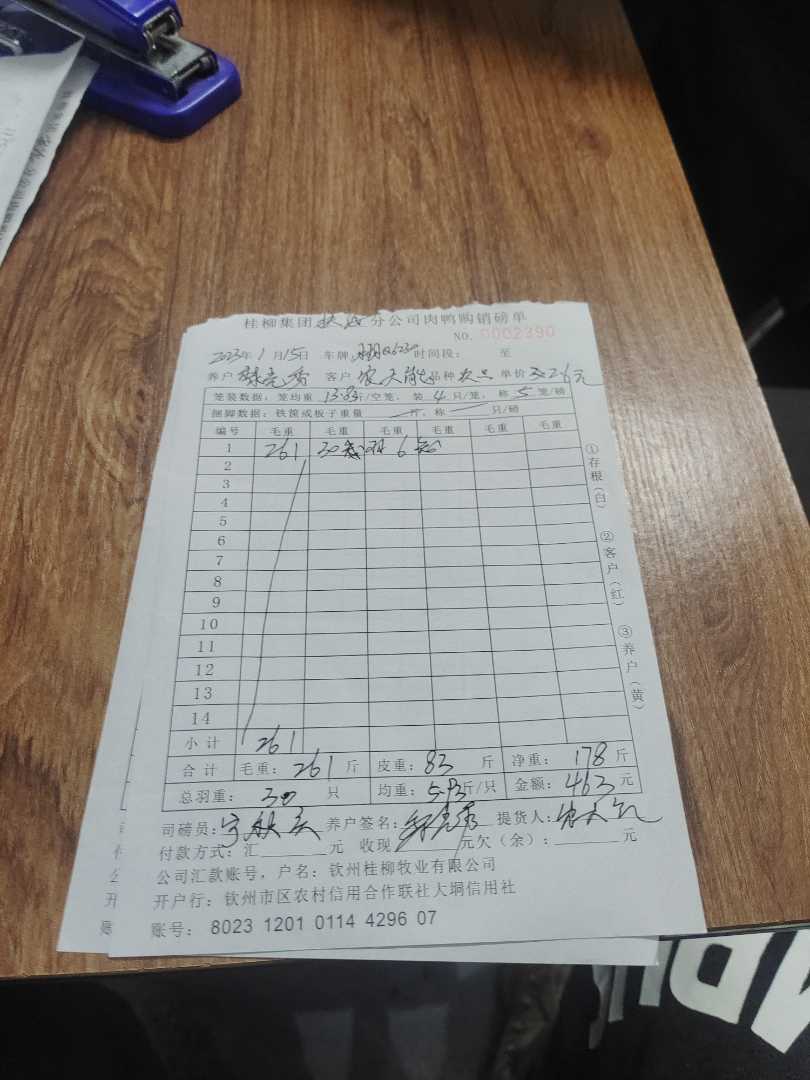 桂柳集团 分公司肉鸭购销磅单
NO. 0002390
2023年1月15日 车牌 时间段: 至
养户 客户 农天 品种 次品 单价 2.6元
笼装数据: 笼均重 13.83斤/空笼, 装 4 只/笼, 称 5 笼/磅
捆脚数据: 铁筐或板子重量 斤, 称 只/磅
编号 毛重 毛重 毛重 毛重 毛重 毛重
1 261 30 6
2
3
4
5
6
7
8
9
10
11
12
13
14
小计 261
合计 毛重: 261 斤 皮重: 83 斤 净重: 178 斤
总羽重: 30 只 均重: 5.93斤/只 金额: 463 元
司磅员: 养户签名: 提货人:
付款方式: 汇 元 收现 元欠(余): 元
公司汇款账号, 户名: 钦州桂柳牧业有限公司
开户行: 钦州市区农村信用合作联社大垌信用社
账号: 8023 1201 0114 4296 07
①存根(白) ②客户(红) ③养户(黄)